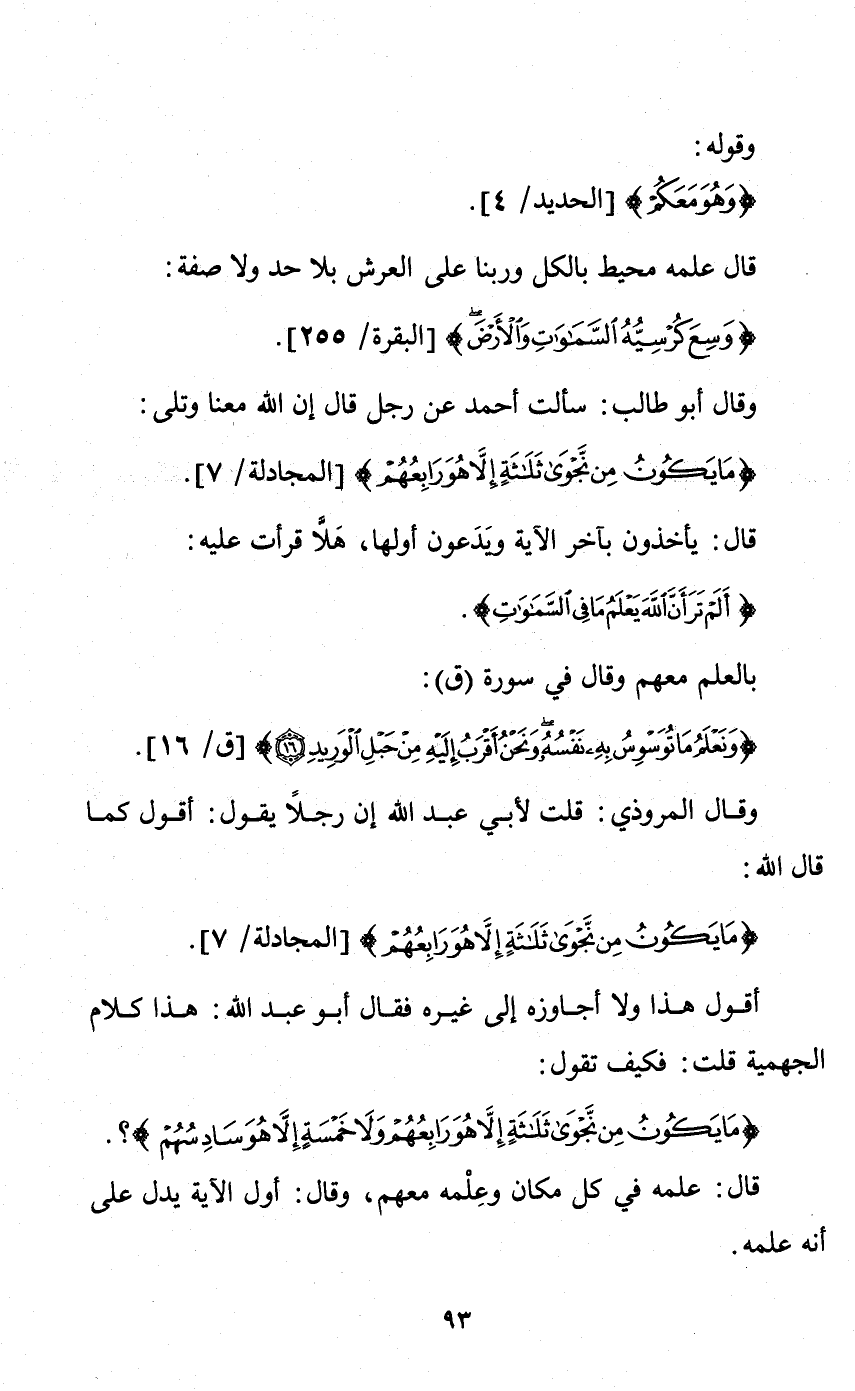 وقوله:
﴿وَهُوَ مَعَكُمْ﴾ [الحديد/ ٤].
قال علمه محيط بالكل وربنا على العرش بلا حد ولا صفة:
﴿وَسِعَ كُرْسِيُّهُ ٱلسَّمَٰوَٰتِ وَٱلْأَرْضَۖ﴾ [البقرة/ ٢٥٥].
وقال أبو طالب: سألت أحمد عن رجل قال إن الله معنا وتلى:
﴿مَا يَكُونُ مِن نَّجْوَىٰ ثَلَٰثَةٍ إِلَّا هُوَ رَابِعُهُمْ﴾ [المجادلة/ ٧].
قال: يأخذون بآخر الآية ويَدَعون أولها، هَلَّا قرأت عليه:
﴿أَلَمْ تَرَ أَنَّ ٱللَّهَ يَعْلَمُ مَا فِى ٱلسَّمَٰوَٰتِ﴾.
بالعلم معهم وقال في سورة (ق):
﴿وَنَعْلَمُ مَا تُوَسْوِسُ بِهِۦ نَفْسُهُۥۖ وَنَحْنُ أَقْرَبُ إِلَيْهِ مِنْ حَبْلِ ٱلْوَرِيدِ ١٦﴾ [ق/ ١٦].
وقال المروذي: قلت لأبي عبد الله إن رجلاً يقول: أقول كما
قال الله:
﴿مَا يَكُونُ مِن نَّجْوَىٰ ثَلَٰثَةٍ إِلَّا هُوَ رَابِعُهُمْ﴾ [المجادلة/ ٧].
أقول هذا ولا أجاوزه إلى غيره فقال أبو عبد الله: هذا كلام
الجهمية قلت: فكيف تقول:
﴿مَا يَكُونُ مِن نَّجْوَىٰ ثَلَٰثَةٍ إِلَّا هُوَ رَابِعُهُمْ وَلَا خَمْسَةٍ إِلَّا هُوَ سَادِسُهُمْ﴾؟.
قال: علمه في كل مكان وعِلْمه معهم، وقال: أول الآية يدل على
أنه علمه.
٩٣